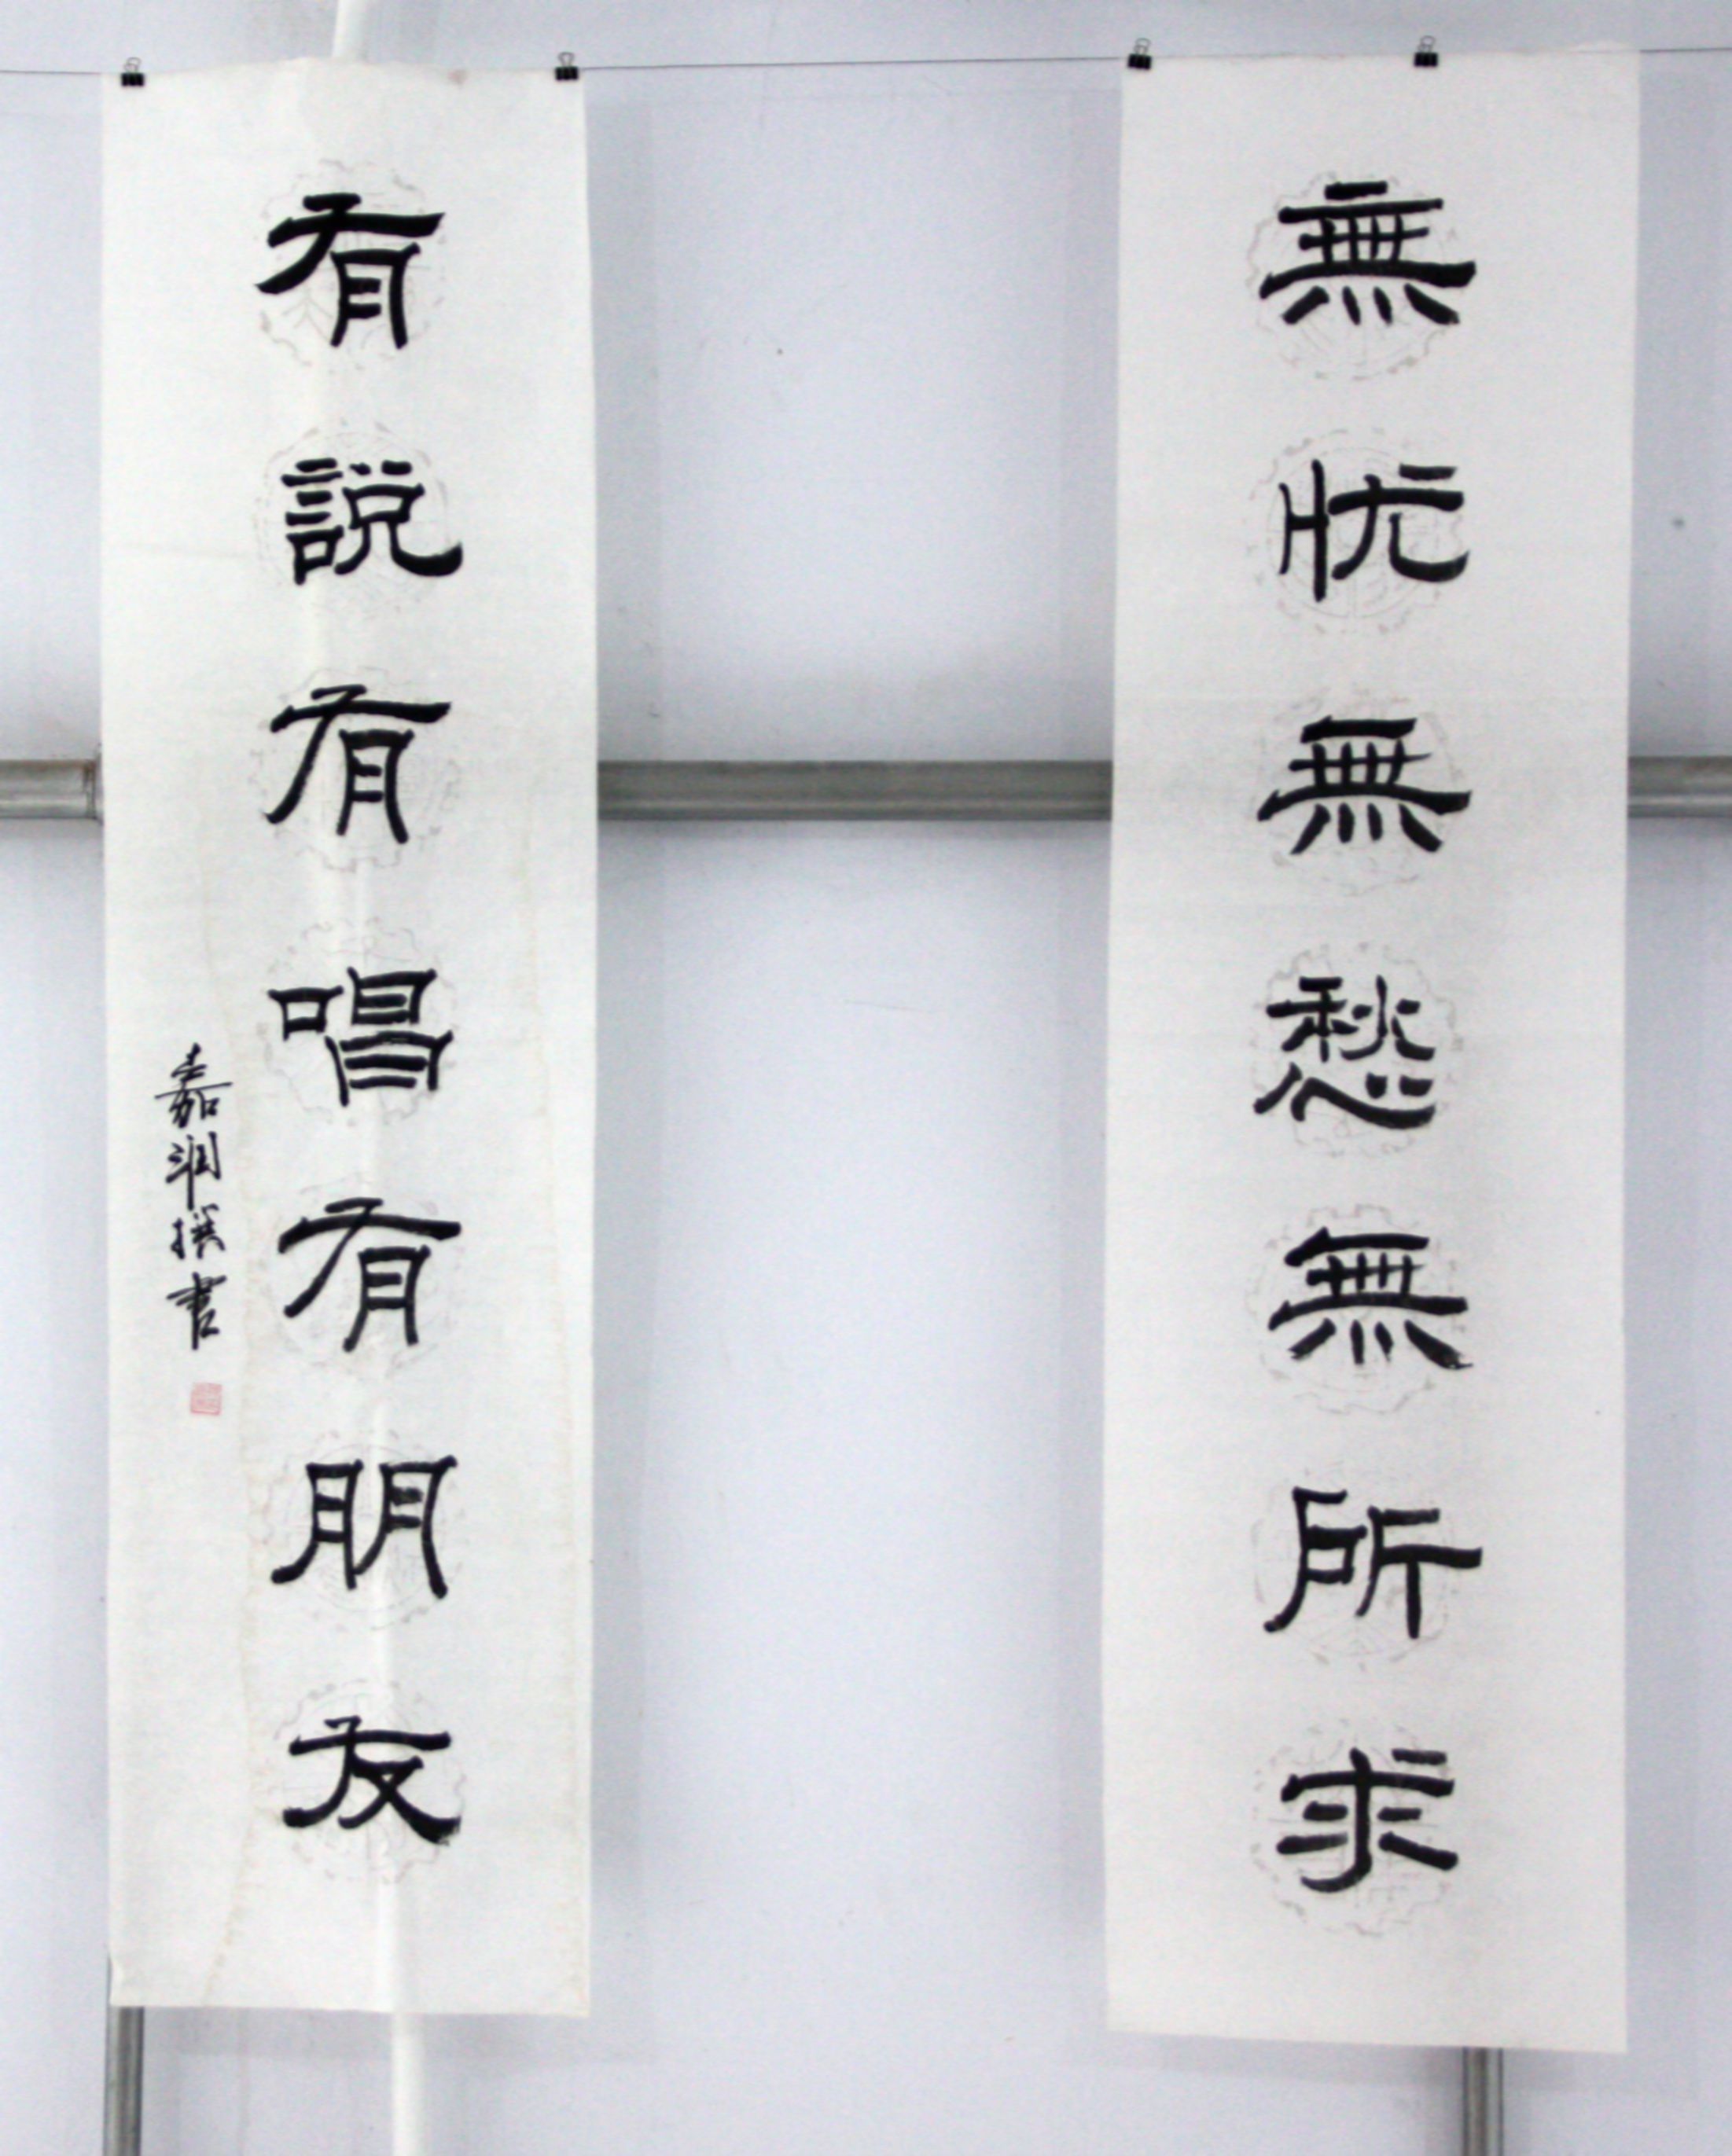 無忧無愁無所求
有説有唱有朋友
嘉润撰書